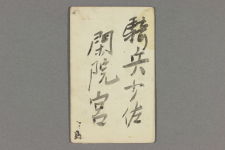 騎兵少佐
閑院宮